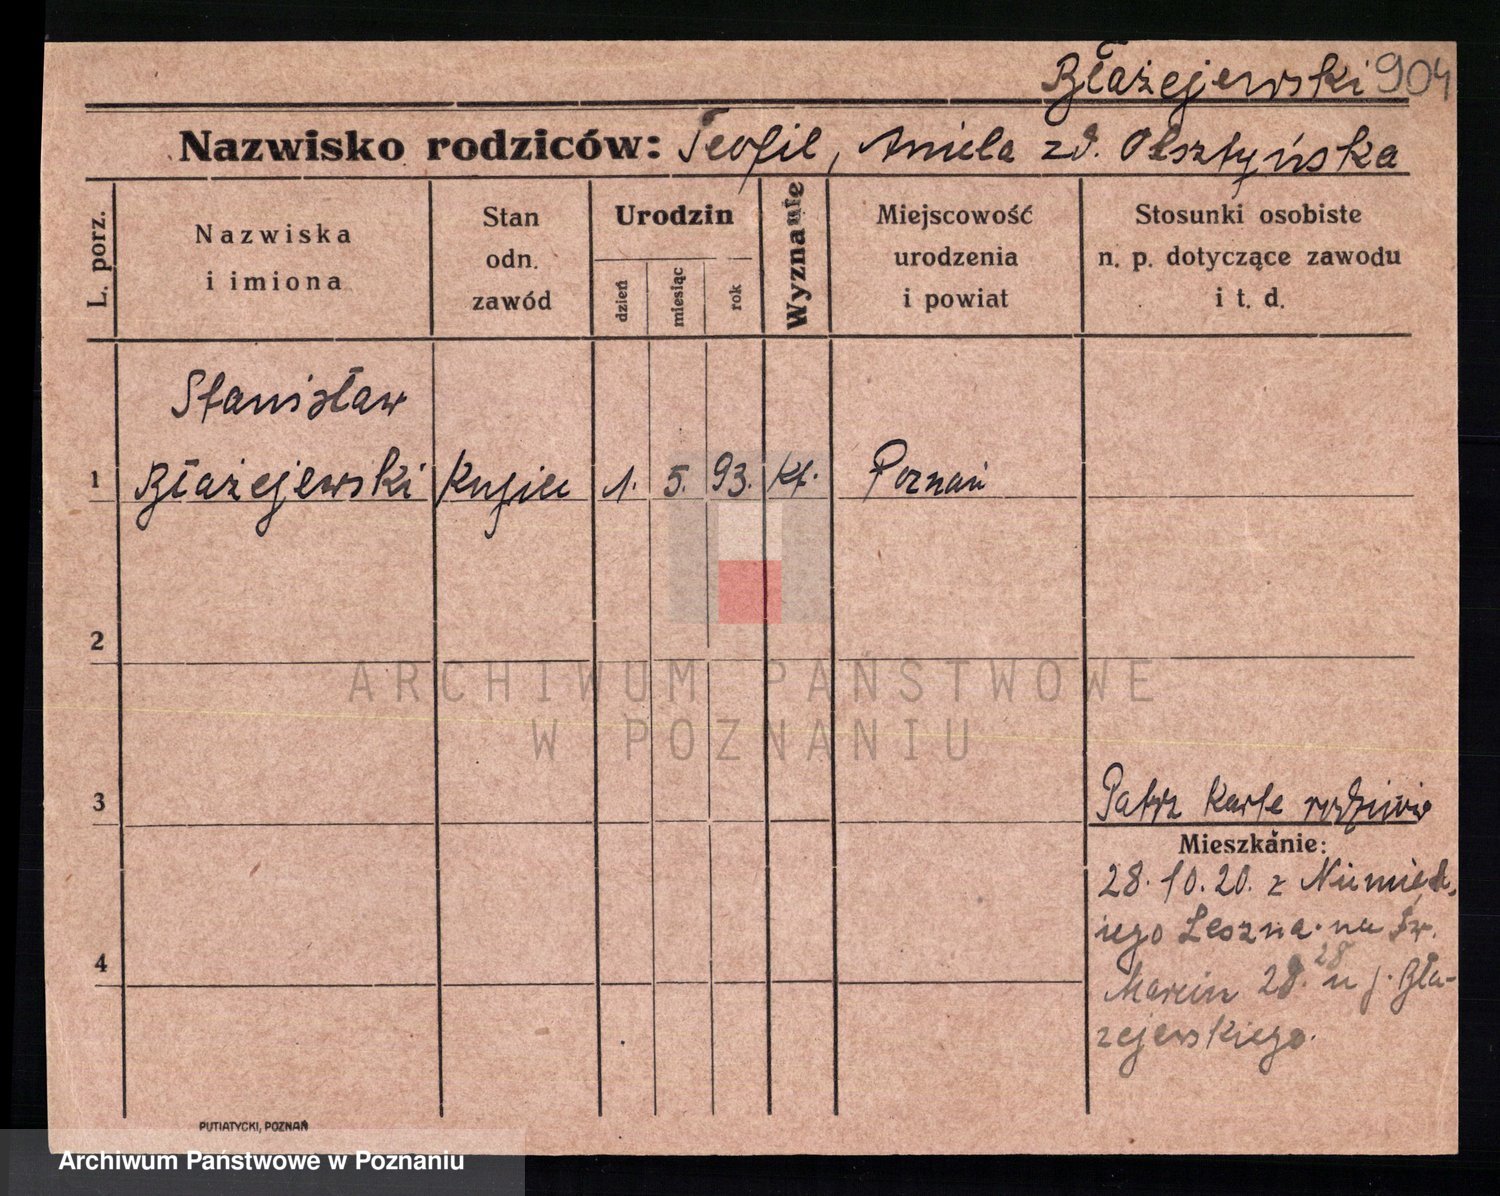 Błażejewski 904
Nazwisko rodziców: Teofil, Aniela zd. Olsztyńska
L. porz.
Nazwiska
i imiona
Stan
odn.
zawód
Urodzin
dzień
miesiąc
rok
Wyznanie
Miejscowość
urodzenia
i powiat
Stosunki osobiste
n. p. dotyczące zawodu
i t. d.
Stanisław
1 Błażejewski Kupiec 1. 5. 93. kt. Poznań
2
ARCHIWUM PAŃSTWOWE
W POZNANIU
3
Patrz Karte
Mieszkanie:
28. 10. 20. z Niemieck,
iego Leszna na Św.
4
Marcin 28. 28 u j. Bła-
zejewskiego.
PUTIATYCKI, POZNAŃ
Archiwum Państwowe w Poznaniu